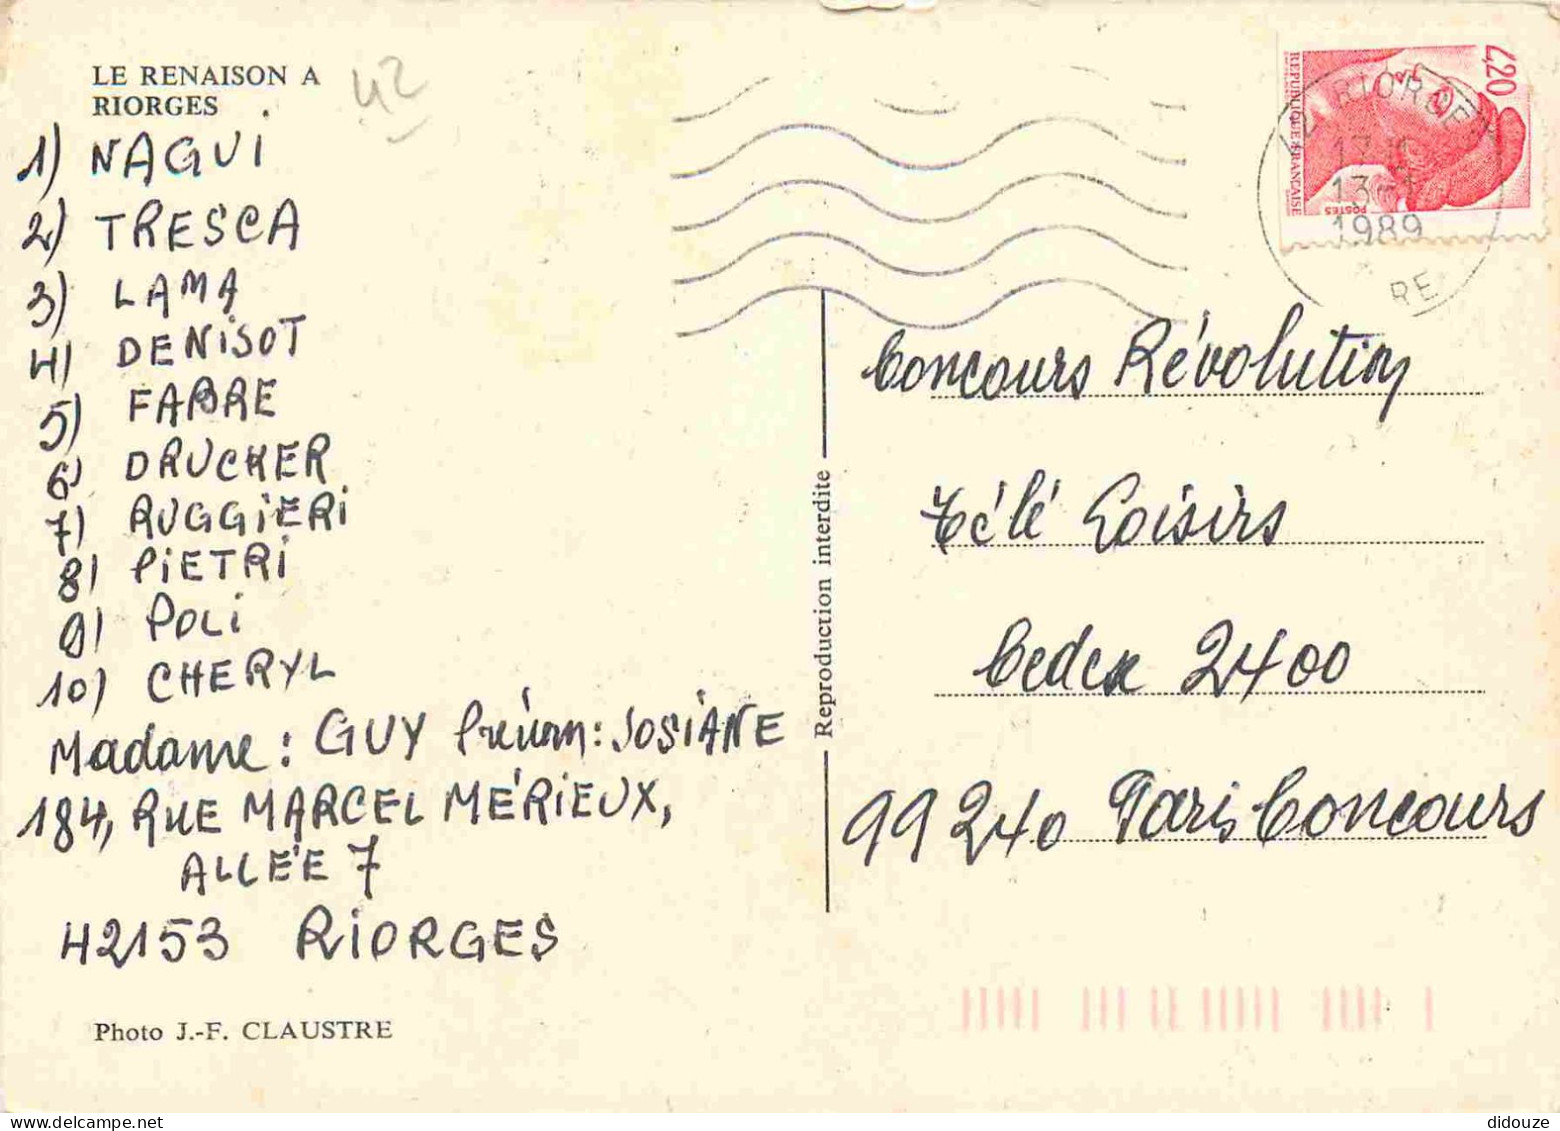 LE RENAISON A
RIORGES
42
1) NAGUI
2) TRESCA
3) LAMA
4) DENISOT
5) FABRE
6) DRUCKER
7) RUGGIERI
8) PIETRI
9) POLI
10) CHERYL
Madame : GUY Prénom : JOSIANE
184, RUE MARCEL MÉRIEUX,
ALLÉE 7
42153 RIORGES
Photo J.-F. CLAUSTRE
Reproduction interdite
2,20
REPUBLIQUE FRANÇAISE
POSTES
42 RIORGES
13-
1989
RE
Concours Révolution
Télé Loisirs
Cedex 2400
99240 Paris Concours
didouze